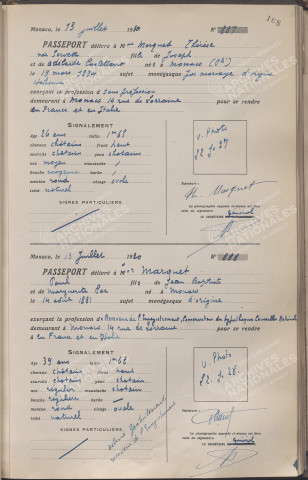 168
Monaco, le 13 juillet 1920 N° 887
PASSEPORT délivré à Mme Marquet Thérèse
née Servetti fille de Joseph
et de Adélaïde Castellano né à Monaco (Pté)
le 19 mars 1894 sujet monégasque par mariage d'origine
italienne
exerçant la profession de sans profession
demeurant à Monaco 14 rue de Lorraine pour se rendre
en France et en Italie
SIGNALEMENT
âge 26 ans taille 1m63
cheveux châtains front haut
sourcils châtains yeux châtains
nez moyen moustache /
bouche moyenne barbe /
menton rond visage ovale
teint naturel
SIGNES PARTICULIERS
v. Photo
S.L. 27
Signature :
Th. Marquet
La photographie apposée ci-dessus est bien
celle du signataire.
Monaco, le 13 Juillet 1920 N° 888
PASSEPORT délivré à Mr Marquet
Paul fils de Jean Baptiste
et de Marguerite né à Monaco
le 14 août 1881 sujet monégasque d'origine
exerçant la profession de Receveur de l'Enregistrement, Conservateur des hypothèques, Conseiller National
demeurant à Monaco 14 rue de Lorraine pour se rendre
en France et en Italie
SIGNALEMENT
âge 39 ans taille 1m68
cheveux châtains front haut
sourcils châtains yeux châtains
nez régulier moustache châtain
bouche régulière barbe /
menton rond visage ovale
teint naturel
SIGNES PARTICULIERS
v. Photo
S.L. 28
Signature :
La photographie apposée ci-dessus est bien
celle du signataire.